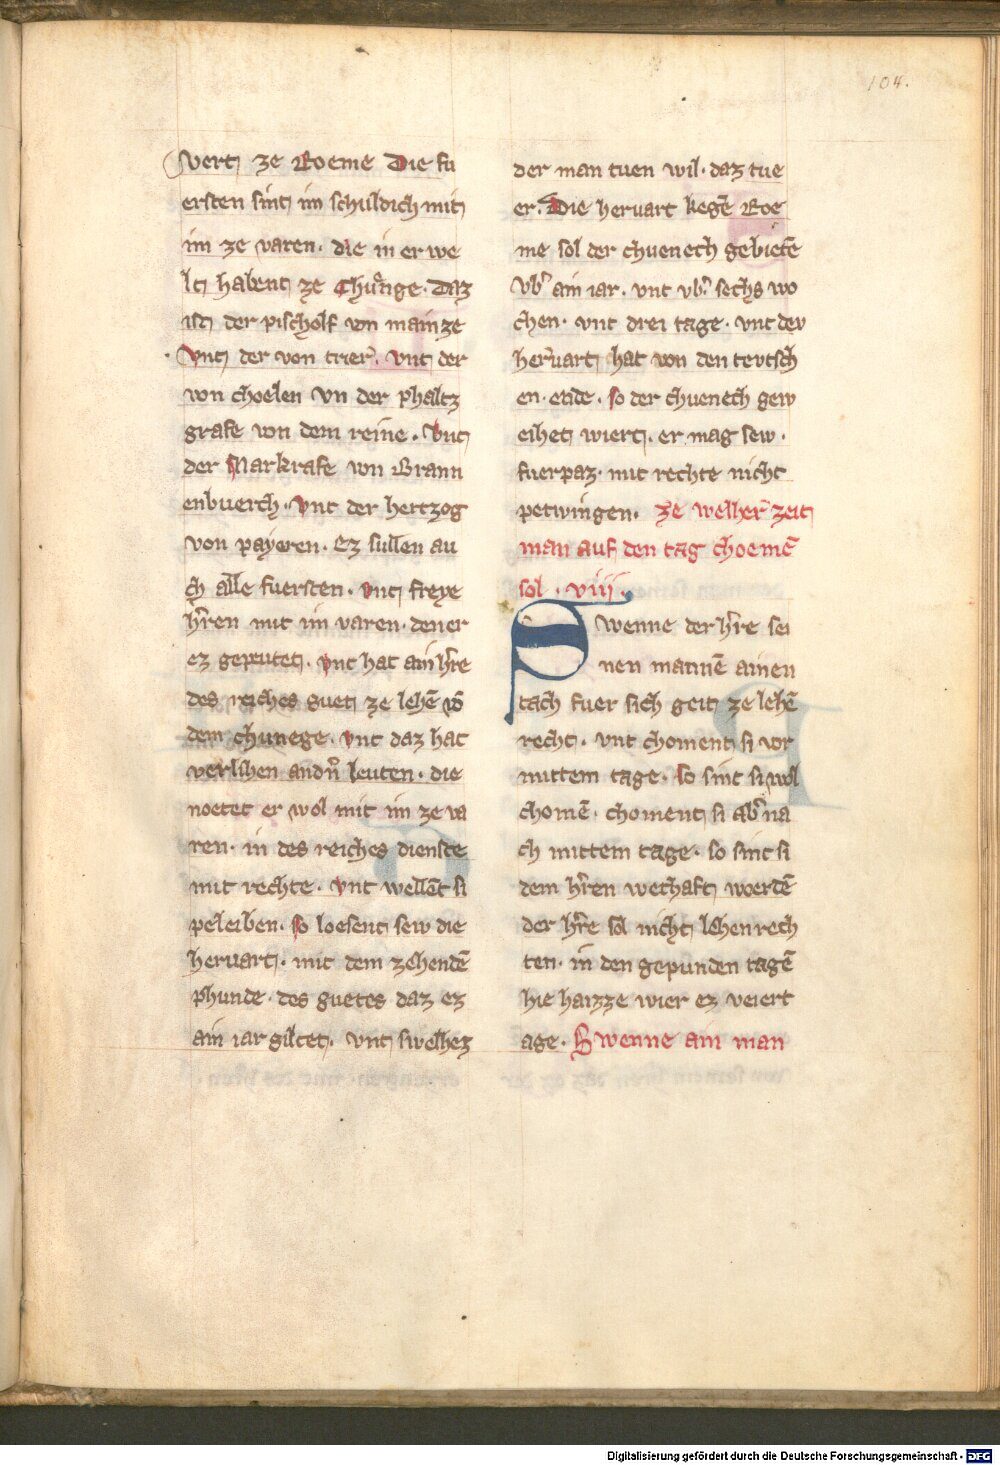 104.
vert ze Roeme Die fu
ersten sint im schuldich mit
im ze varen. die in er we
lt habent ze Chuͤnge. Daz
ist der pischolf von mainze
Vnt der von trier. Vnt der
von choelen vn der phaltz
grafe von dem reine. Vnt
der Markrafe von Brann
enbuerch. Vnt der hertzog
von payeren. Ez sullen au
ch alle fuersten. vnt freye
h̄ren mit im varen. den er
ez geputet. vnt hat ain h̄re
des reiches guet ze lehē vō
dem chunege. vnt daz hat
verlihen andn̄ leuten. die
noetet er wol mit im ze va
ren. in des reiches dienste
mit rechte. vnt wellēt si
peleiben. so loesent sew die
hervart. mit dem zehendē
phunde. des guetes daz ez
ain iar giltet. vnt swelhez
der man tuen wil. daz tue
er. Die hervart kegē Roe
me sol der chuenech gebietē
Vb̄ ain iar. vnt vb̄ sechs wo
chen. vnt drei tage. vnt dev
hervart hat von den tevtsch
en. ende. so der chuenech gew
eihet wiert. er mag sew.
fuerpaz. mit rechte nicht
petwingen. ze welher zeit
man auf den tag choemē
sol. viii.
Swenne der h̄re sei
nen mannē ainen
tach fuer sich geit ze lehē
recht. vnt choment si vor
mittem tage. so sint si wol
chomē. choment si ab̄ na
ch mittem tage. so sint si
dem h̄ren wethaft woerdē
der h̄re sol nicht lehenrech
ten. in den gepunden tagē
hie haizze wier ez veiert
age. Swenne ain man
Digitalisierung gefördert durch die Deutsche Forschungsgemeinschaft - DFG